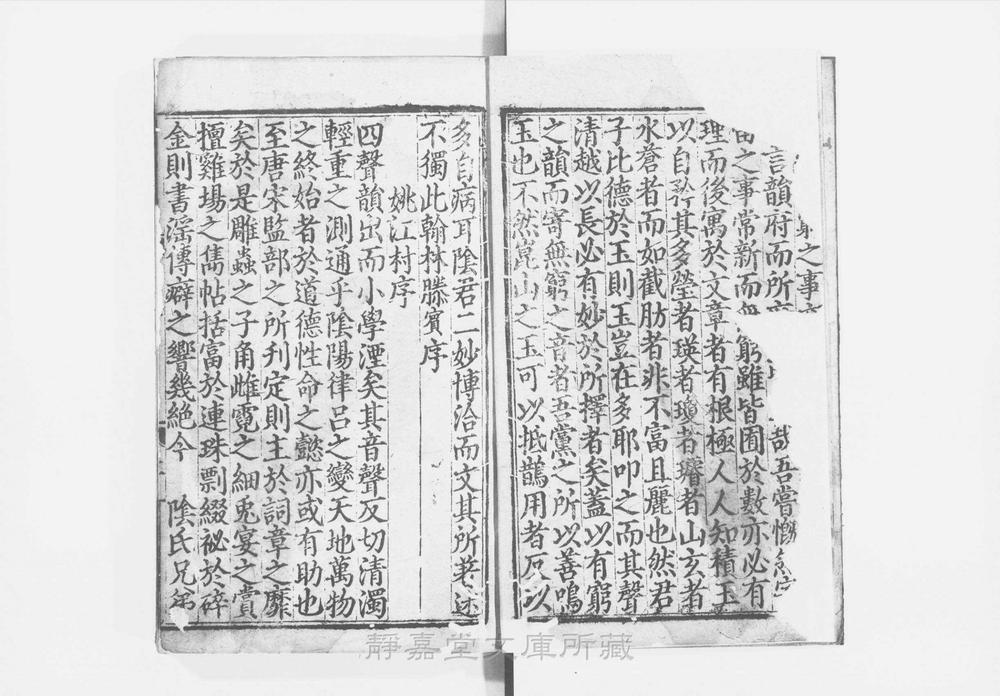 之事
言韻府而所 哉吾嘗
之事常新而無窮雖皆囿於數亦必有
理而後寓於文章者有根極人人知積玉
以自矜其多瑩者瑛者瓊者璿者山玄者
水蒼者而如截肪者非不富且麗也然君
子比德於玉則玉豈在多耶叩之而其聲
清越以長必有妙於所擇者矣蓋以有窮
之韻而寄無窮之音者吾黨之所以善鳴
玉也不然崑山之玉可以抵鵲用者厄以
多自病耳陰君二妙博洽而文其所著述
不獨此翰林滕賓序
姚江村序
四聲韻出而小學湮矣其音聲反切清濁
輕重之測通乎陰陽律呂之變天地萬物
之終始者於道德性命之懿亦或有助也
至唐宋監部之所刋定則主於詞章之靡
矣於是雕蟲之子角雌霓之細兎宴之賞
擅雞場之雋帖括富於連珠剽綴祕於碎
金則書淫傳癖之響幾絶今 陰氏兄弟
靜嘉堂文庫所藏